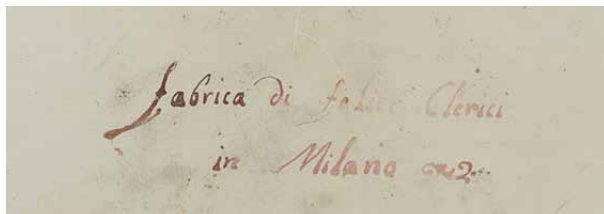 fabrica di felice Clerici
in Milano